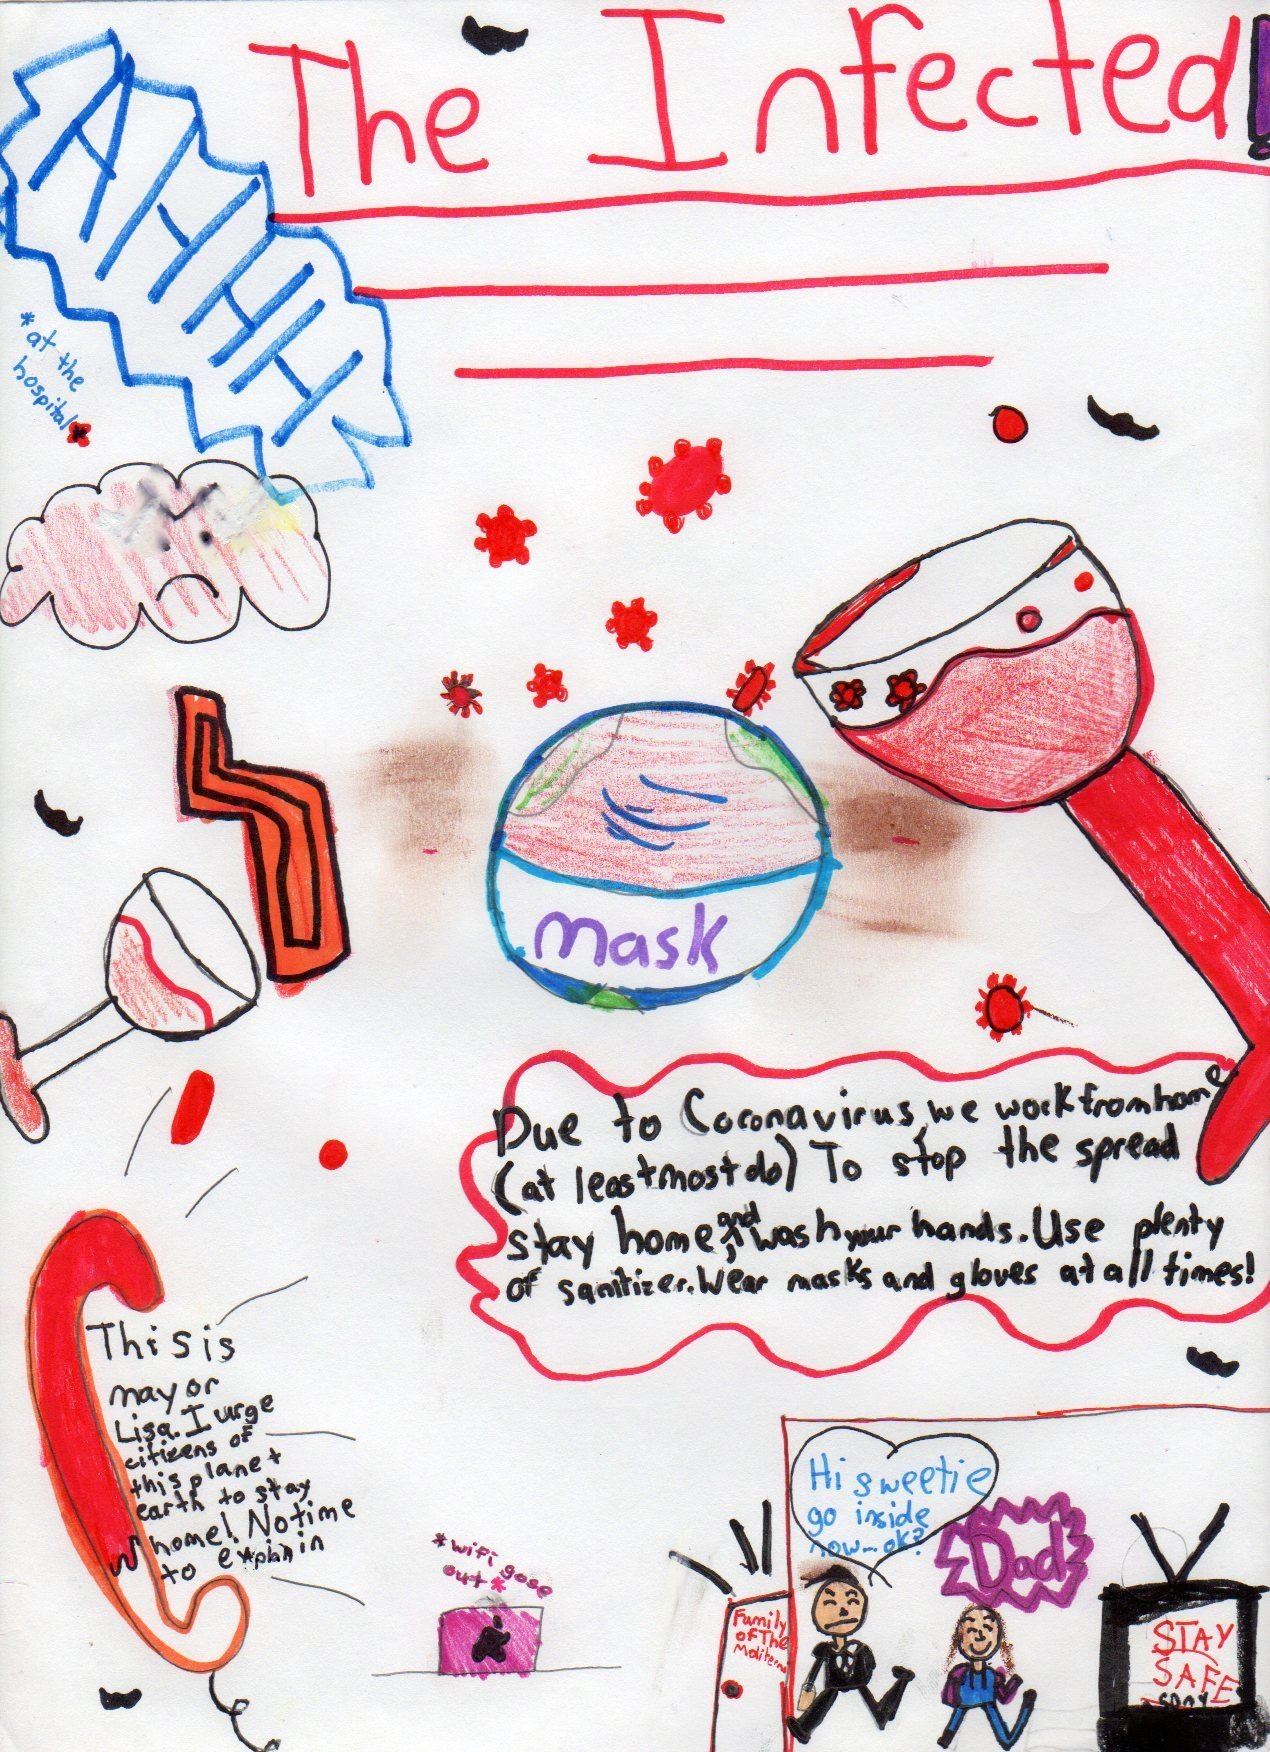 The Infected!
AHHHH
*at the
hospital*
mask
Due to Coronavirus, we work from home
(at least most do) To stop the spread
stay home, and wash your hands. Use plenty
of sanitizer. Wear masks and gloves at all times!
This is
mayor
Lisa. I urge
citizens of
this planet
earth to stay
home! No time
to explain
*wifi gose
out*
Hi sweetie
go inside
now... ok?
Dad
Family
of The
STAY
SAFE
SONY